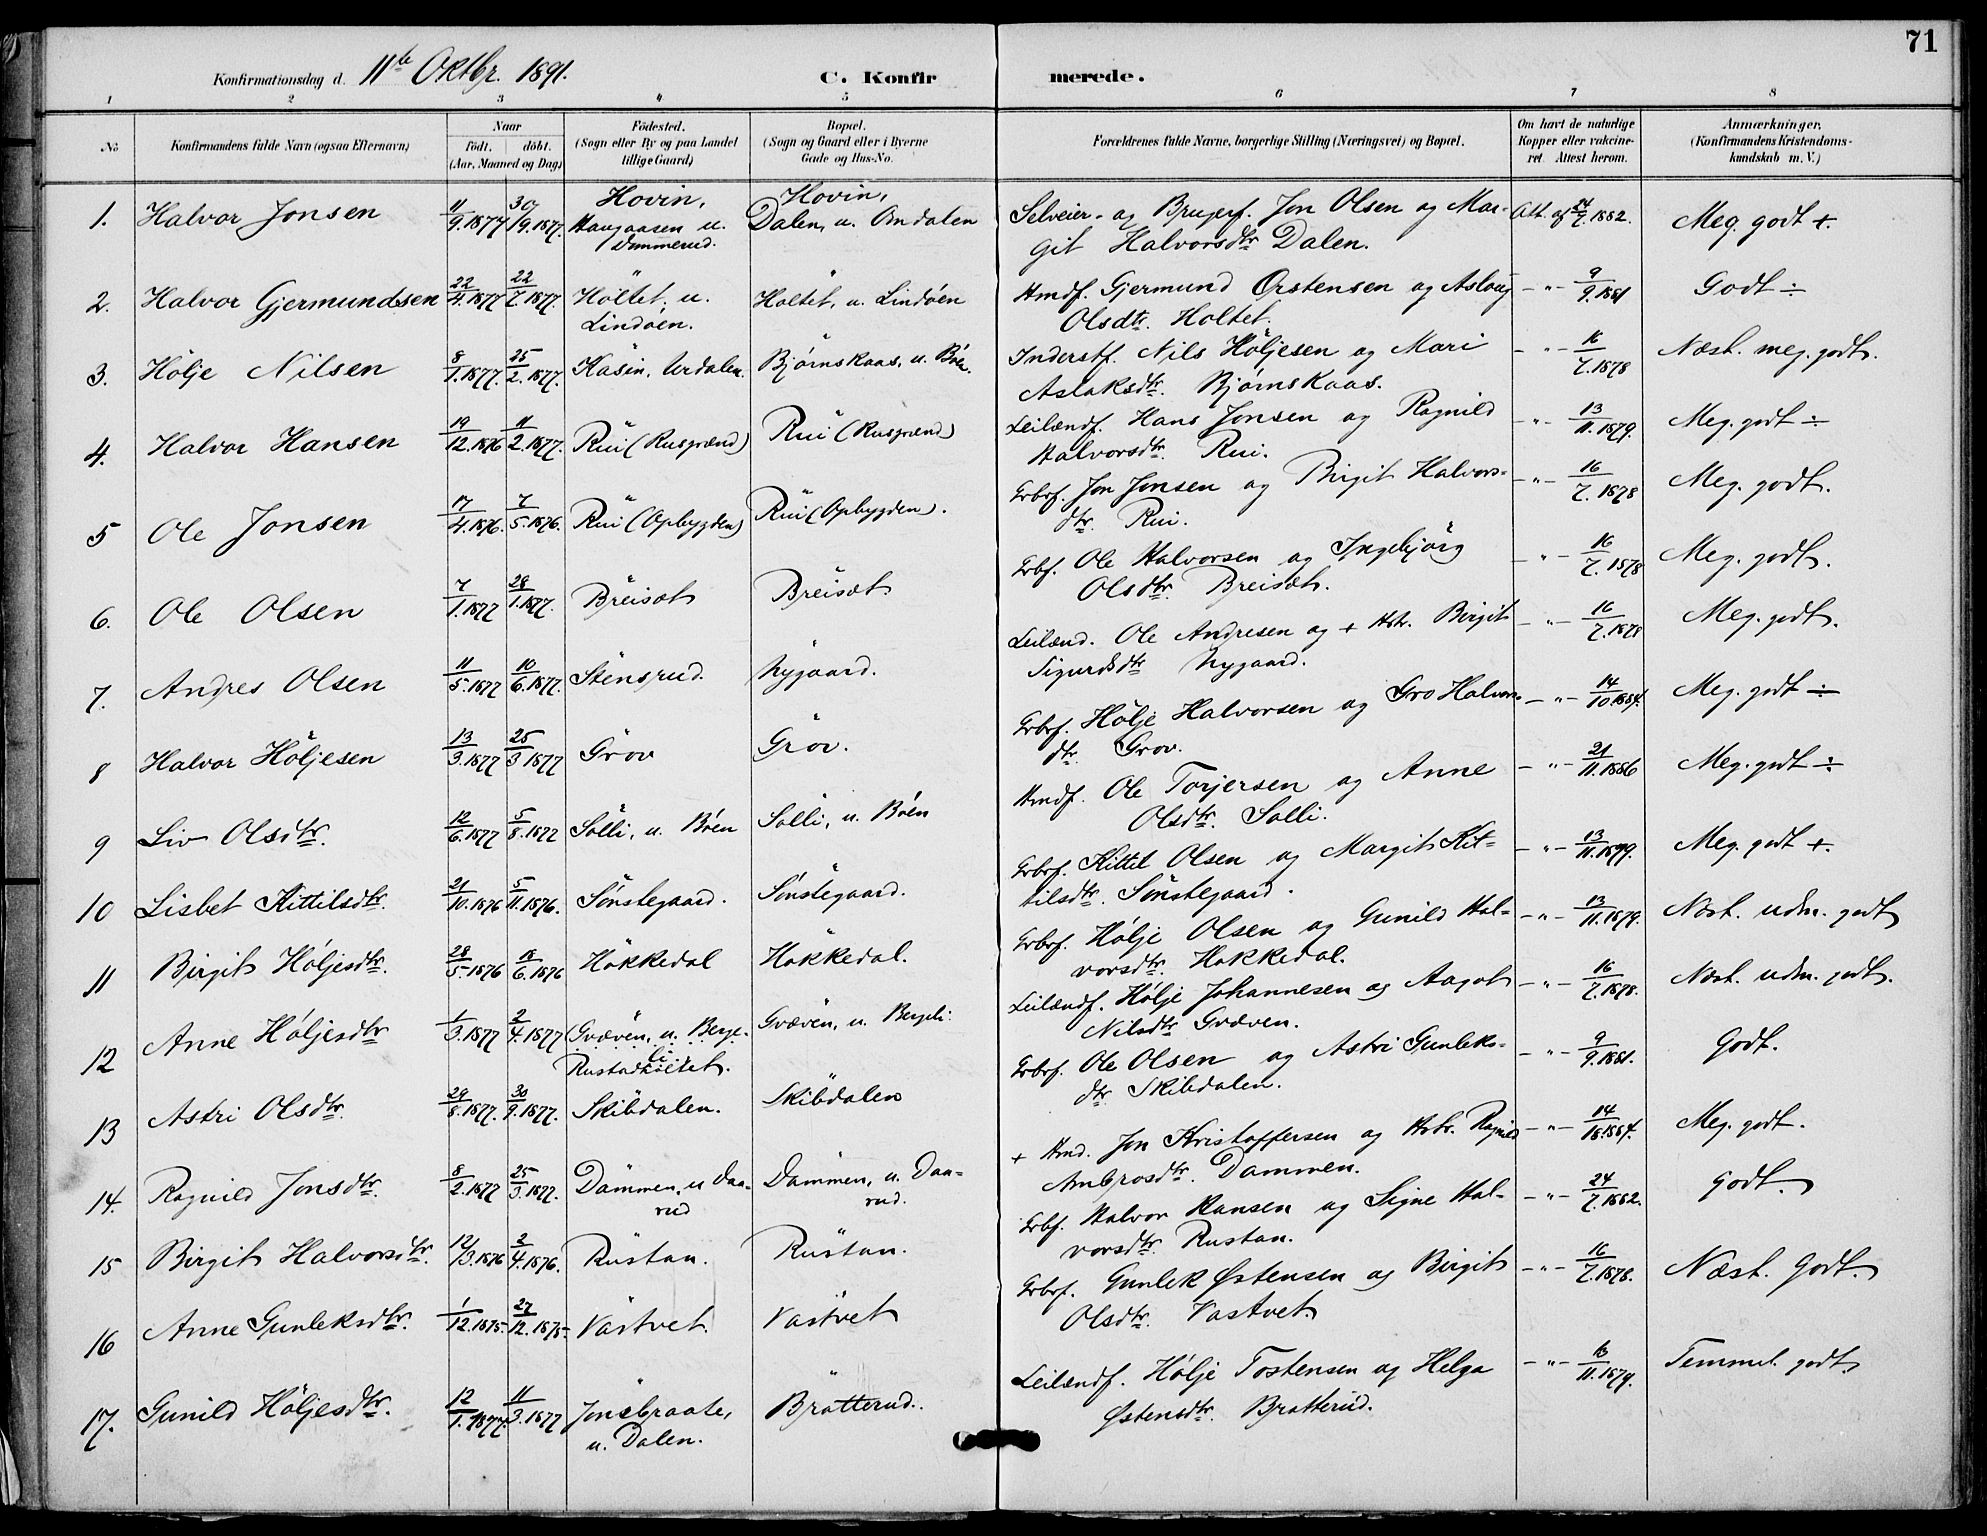 71
Konfirmationsdag d. 11te Oktbr. 1891. C. Konfirmerede.
1 2 3 4 5 6 7 8
No Konfirmandens fulde Navn (ogsaa Efternavn) Naar født. døbt. (Aar, Maaned og Dag) Födested. (Sogn eller By og paa Landet tillige Gaard) Bopæl. (Sogn og Gaard eller i Byerne Gade og Hus-No. Forældrenes fulde Navne, borgerlige Stilling (Næringsvei) og Bopæl. Om havt de naturlige Kopper eller vakcineret. Attest herom. Anmærkninger. (Konfirmandens Kristendomskundskab m. V.)
1. Halvor Jonsen 11/9.1877 30/9.1877. Hovin, Haugaasen u. Dammerud. Hovin, Dalen, u. Omdalen Selveier- og Brugerf. Jon Olsen og Margit Halvorsdtr Dalen. Att. af 24/7.1882. Meg. godt +.
2. Halvor Gjermundsen 22/4.1877 22/7.1877. Holtet, u. Lindøen. Holtet, u. Lindøen Hmdf. Gjermund Ørstensen og Aslaug Olsdtr. Holtet. -"- 9/9.1881 Godt ÷
3. Hölje Nilsen 8/1.1877. 25/2.1877. Kasin, Urdalen. Bjørnskaas, u. Böen. Inderstf. Nils Höljesen og Mari Aslaksdtr. Bjørnskaas. -"- 16/7.1878 Næst. meg. godt.
4. Halvor Hansen 19/12.1876 11/2.1877. Rui (Rusgrænd) Rui (Rusgrænd) Leilændf. Hans Jonsen og Ragnild Halvorsdtr. Rui. -"- 13/11.1879. Meg. godt ÷
5 Ole Jonsen 17/4.1876. 7/5.1876. Rui (Opbygden) Rui (Opbygden). Grbrf. Jon Jonsen og Birgit Halvorsdtr. Rui. -"- 16/7.1878 Meg. godt.
6. Ole Olsen 7/1.1877 28/1.1877. Breisæt Breisæt Grbf. Ole Halvorsen og Ingebjörg Olsdtr. Breisæt. -"- 16/7.1878 Meg. godt.
7. Andres Olsen 11/5.1877 10/6.1877. Stensrud. Nygaard. Leilænd. Ole Andresen og + Hstr. Birgit Sigurdsdtr Nygaard. -"- 16/7.1878 Meg. godt.
8 Halvor Höljesen 13/3.1877 25/3 1877 Grov Grov. Grbrf. Hölje Halvorsen og Gro Halvorsdtr. Grov. -"- 14/10.1884. Meg. godt ÷
9 Liv Olsdtr. 12/6.1877 5/8.1877 Solli, u. Böen Solli, u. Böen Hmdf. Ole Torjersen og Anne Olsdtr. Solli. -"- 21/11.1886 Meg. godt ÷
10 Lisbet Kittilsdtr. 21/10.1876 5/11.1876. Sönstegaard. Sönstegaard. Grbrf. Kittil Olsen og Margit Kittilsdtr. Sönstegaard. -"- 13/11.1879. Meg. godt +.
11 Birgit Höljesdtr. 28/5-1876 18/6.1876 Hokkedal Hakkedal. Grbrf. Hölje Olsen og Gunild Halvorsdtr. Hakkedal. -"- 13/11.1879. Næst. udm. godt
12 Anne Höljesdtr 1/3.1877 2/4.1877 Gvæven, u. Bergeli Rustadholtet. Gvæven, u. Bergeli. Leilændf. Hölje Johannesen og Aagot Nilsdtr Gvæven. -"- 16/7.1878. Næst. udm. godt.
13 Astri Olsdtr. 29/8.1877. 30/9.1877. Skibdalen. Skibdalen Grbrf. Ole Olsen og Astri Gunleksdtr. Skibdalen. -"- 9/9.1881. Godt.
14. Ragnild Jonsdtr. 8/2.1877 25/3.1877. Dammen, u Daarud Dammen, u. Daarud. + Hmd. Jon Kristoffersen og Hstr. Ragnild Ambrosdtr. Dammen. -"- 14/10.1884. Meg. godt.
15 Birgit Halvorsdtr. 12/3.1876 2/4.1876. Rustan. Rustan. Grbf. Halvor Hansen og Signe Halvorsdtr. Rustan. -"- 24/7.1882. Godt.
16 Anne Gunleksdtr. 1/12.1875- 27/12.1875- Vastvet. Vastvet Grbrf. Gunlek Østensen og Birgit Olsdtr. Vastvet. -"- 16/7.1878. Næst. Godt.
17. Gunild Höljesdtr. 12/1.1877. 11/3.1877 Jonsbraate, u. Dalen. Bratterud. Leilændf. Hölje Tostensen og Helga Østensdtr. Bratterud. -"- 13/11.1879. Temmel. godt